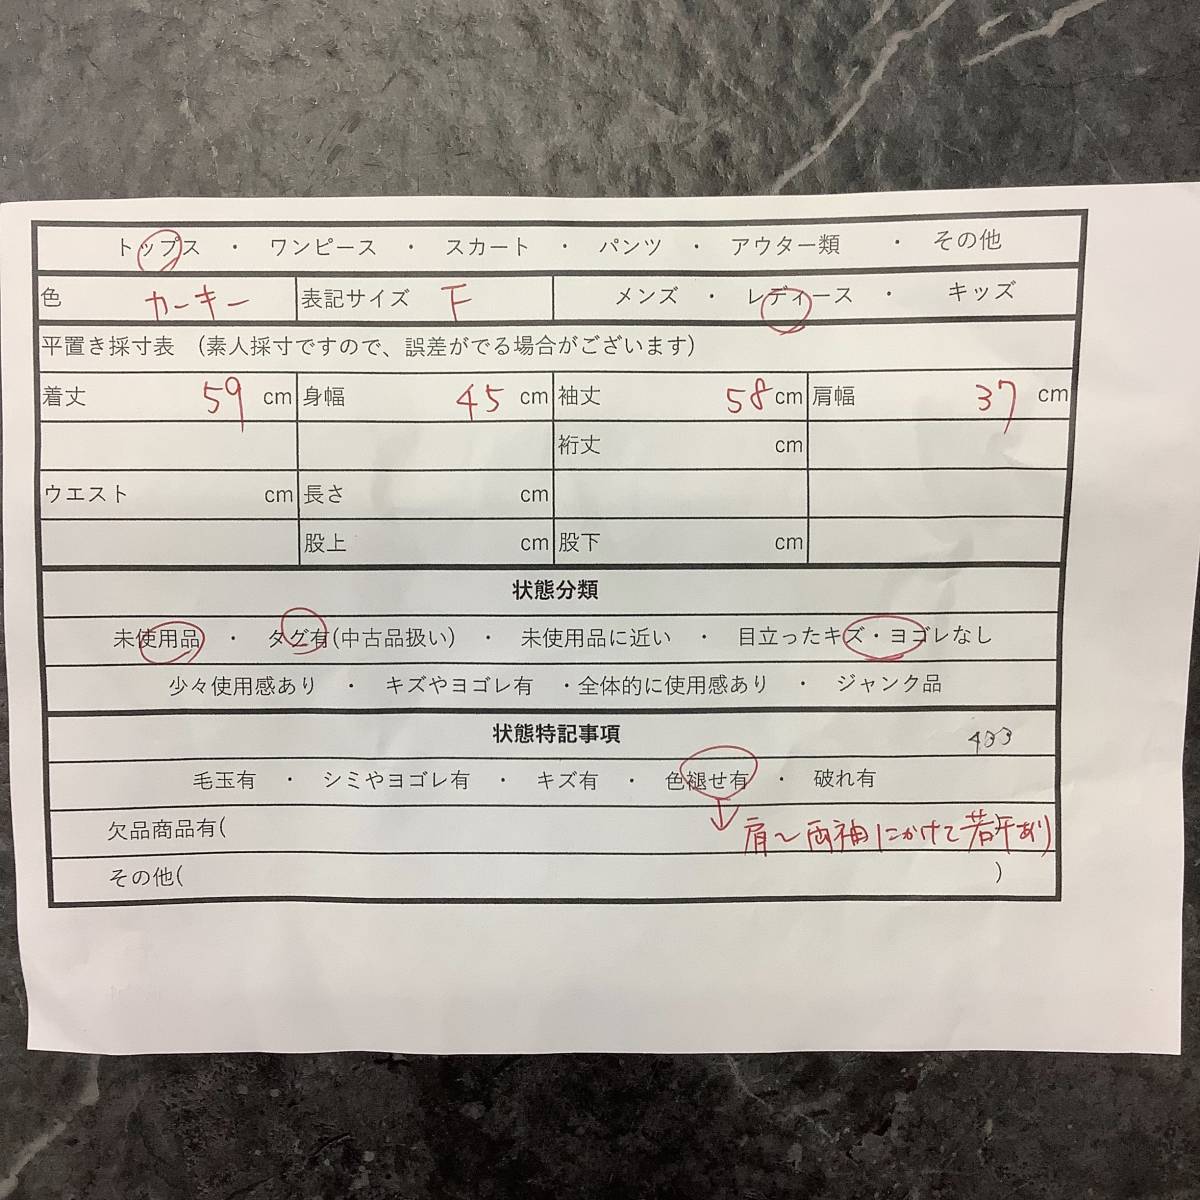 トップス ・ ワンピース ・ スカート ・ パンツ ・ アウター類 ・ その他
色 カーキー 表記サイズ F メンズ ・ レディース ・ キッズ
平置き採寸表 (素人採寸ですので、誤差がでる場合がございます)
着丈 59 cm 身幅 45 cm 袖丈 58 cm 肩幅 37 cm
裄丈 cm
ウエスト cm 長さ cm
股上 cm 股下 cm
状態分類
未使用品 ・ タグ有(中古品扱い) ・ 未使用品に近い ・ 目立ったキズ・ヨゴレなし
少々使用感あり ・ キズやヨゴレ有 ・全体的に使用感あり ・ ジャンク品
状態特記事項 433
毛玉有 ・ シミやヨゴレ有 ・ キズ有 ・ 色褪せ有 ・ 破れ有
欠品商品有( ↓ 肩〜両袖にかけて若干あり
その他( )